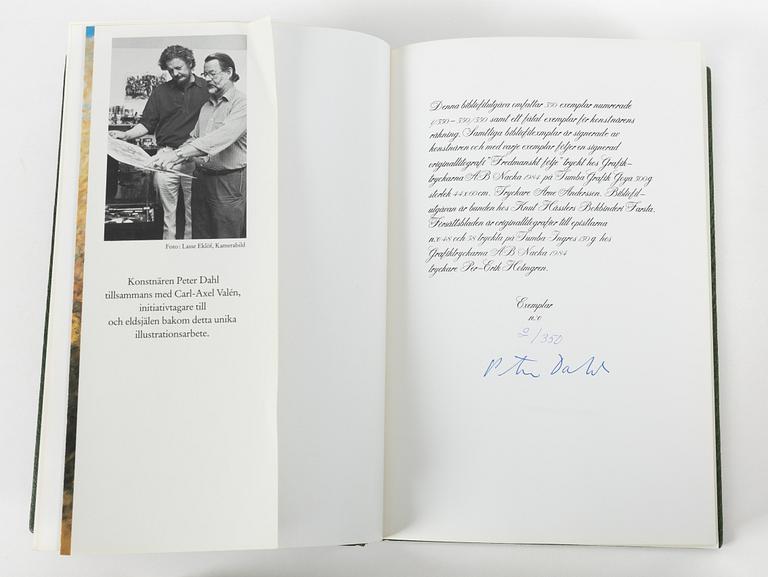 Foto: Lasse Eklöf, Kamerabild
Konstnären Peter Dahl
tillsammans med Carl-Axel Valén,
initiativtagare till
och eldsjälen bakom detta unika
illustrationsarbete.
Denna bibliofilutgåva omfattar 350 exemplar numrerade
1/350–350/350 samt ett fåtal exemplar för konstnärens
räkning. Samtliga bibliofilexmplar är signerade av
konstnären och med varje exemplar följer en signerad
originallitografi "Fredmanskt följe" tryckt hos Grafik-
tryckarna AB Nacka 1984 på Tumba Grafik Goya 300 g
storlek 44x60 cm. Tryckare Arne Anderssen. Bibliofil-
utgåvan är bunden hos Knut Hässlers Bokbinderi Farsta.
Försättsbladen är originallitografier till epistlarna
n:o 48 och 38 tryckta på Tumba Ingres 130 g hos
Grafiktryckarna AB Nacka 1984
tryckare Per-Erik Holmgren.
Exemplar
n:o
/350
Peter Dahl